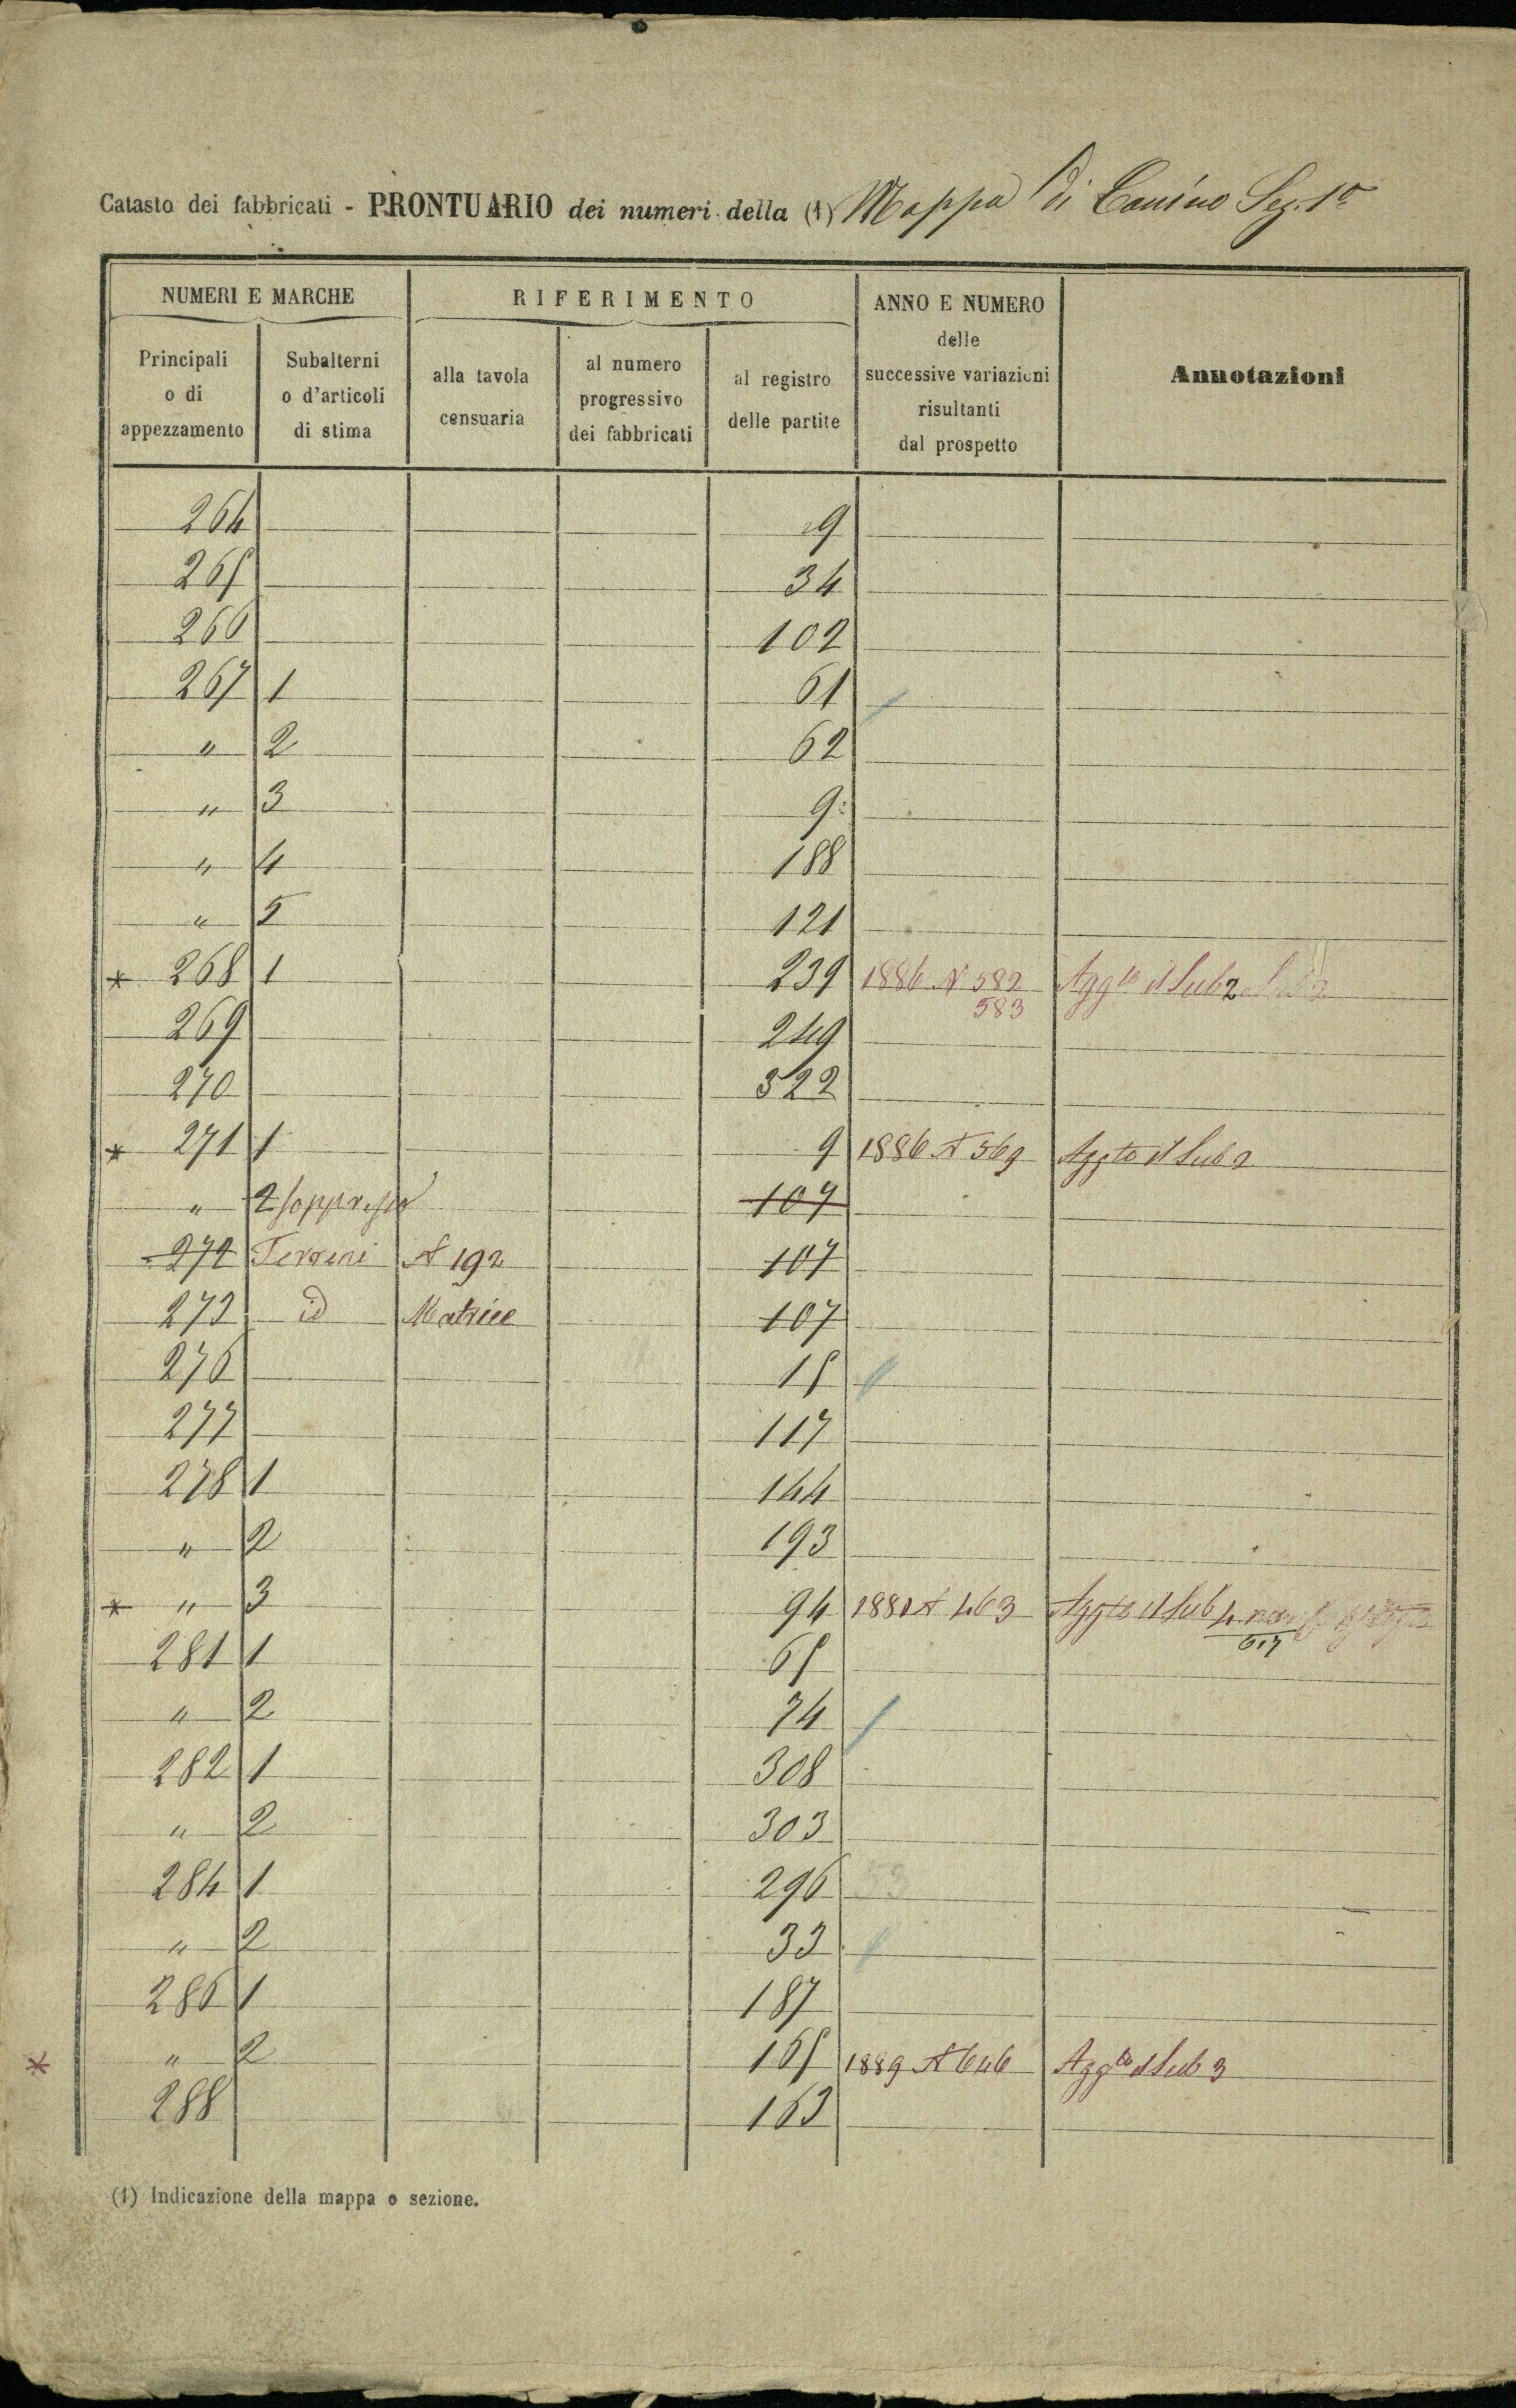 Catasto dei fabbricati - PRONTUARIO dei numeri della (1) Mappa di Canino Sez. 1ª
NUMERI E MARCHE
RIFERIMENTO
ANNO E NUMERO
delle
successive variazioni
risultanti
dal prospetto
Annotazioni
Principali
o di
appezzamento
Subalterni
o d'articoli
di stima
alla tavola
censuaria
al numero
progressivo
dei fabbricati
al registro
delle partite
264 9
265 34
266 102
267 1 61
" 2 62
" 3 9
" 4 188
" 5 121
* 268 1 239 1886 N 582 Aggto il Sub 2
583
269 249
270 322
* 271 1 9 1886 N 569 Aggto il Sub 2
" 2 soppresso 107
272 Terreni N 192 107
273 id Matrice 107
276 15
277 117
278 1 144
" 2 193
* " 3 94 1881 N 463 Aggto il Sub 4
617
281 1 65
" 2 74
282 1 308
" 2 303
284 1 296 53
" 2 33
286 1 187
* " 2 165 1889 N 646 Aggto il Sub 3
288 163
(1) Indicazione della mappa o sezione.